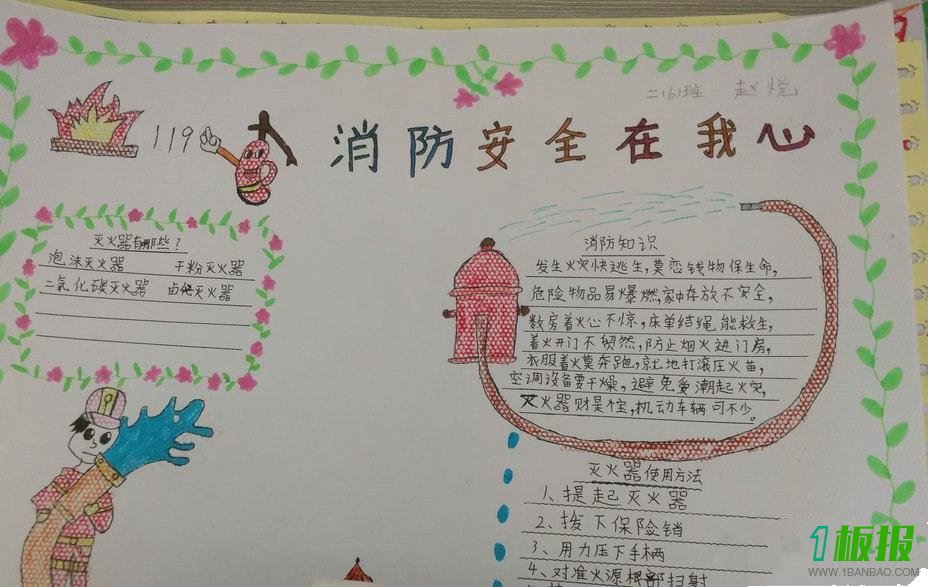 二(6)班 赵悦
119
消防安全在我心
灭火器有哪些?
泡沫灭火器 干粉灭火器
二氧化碳灭火器 卤代灭火器
消防知识
发生火灾快逃生,莫恋钱物保生命,
危险物品易爆燃,家中存放不安全,
数房着火心不惊,床单结绳能救生,
着火开门不贸然,防止烟火进门房,
衣服着火莫奔跑,就地打滚压火苗,
空调设备要干燥,避免受潮起火灾,
灭火器财是个宝,机动车辆可不少。
灭火器使用方法
1、提起灭火器
2、拨下保险销
3、用力压下手柄
4、对准火源根部扫射
1板报
WWW.1BANBAO.COM